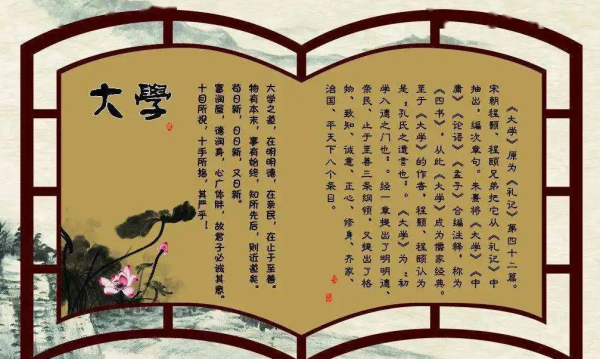 《大学》原为《礼记》第四十二篇。
宋朝程颢、程颐兄弟把它从《礼记》中
抽出，编次章句。朱熹将《大学》《中
庸》《论语》《孟子》合编注释，称为
《四书》，从此《大学》成为儒家经典。
至于《大学》的作者，程颢、程颐认为
是“孔氏之遗言也”。《大学》为“初
学入德之门也”。经一章提出了明明德、
亲民、止于至善三条纲领，又提出了格
物、致知、诚意、正心、修身、齐家、
治国、平天下八个条目。
大學
大学之道，在明明德，在亲民，在止于至善。
物有本末，事有始终，知所先后，则近道矣。
苟日新，日日新，又日新。
富润屋，德润身，心广体胖，故君子必诚其意。
十目所视，十手所指，其严乎！